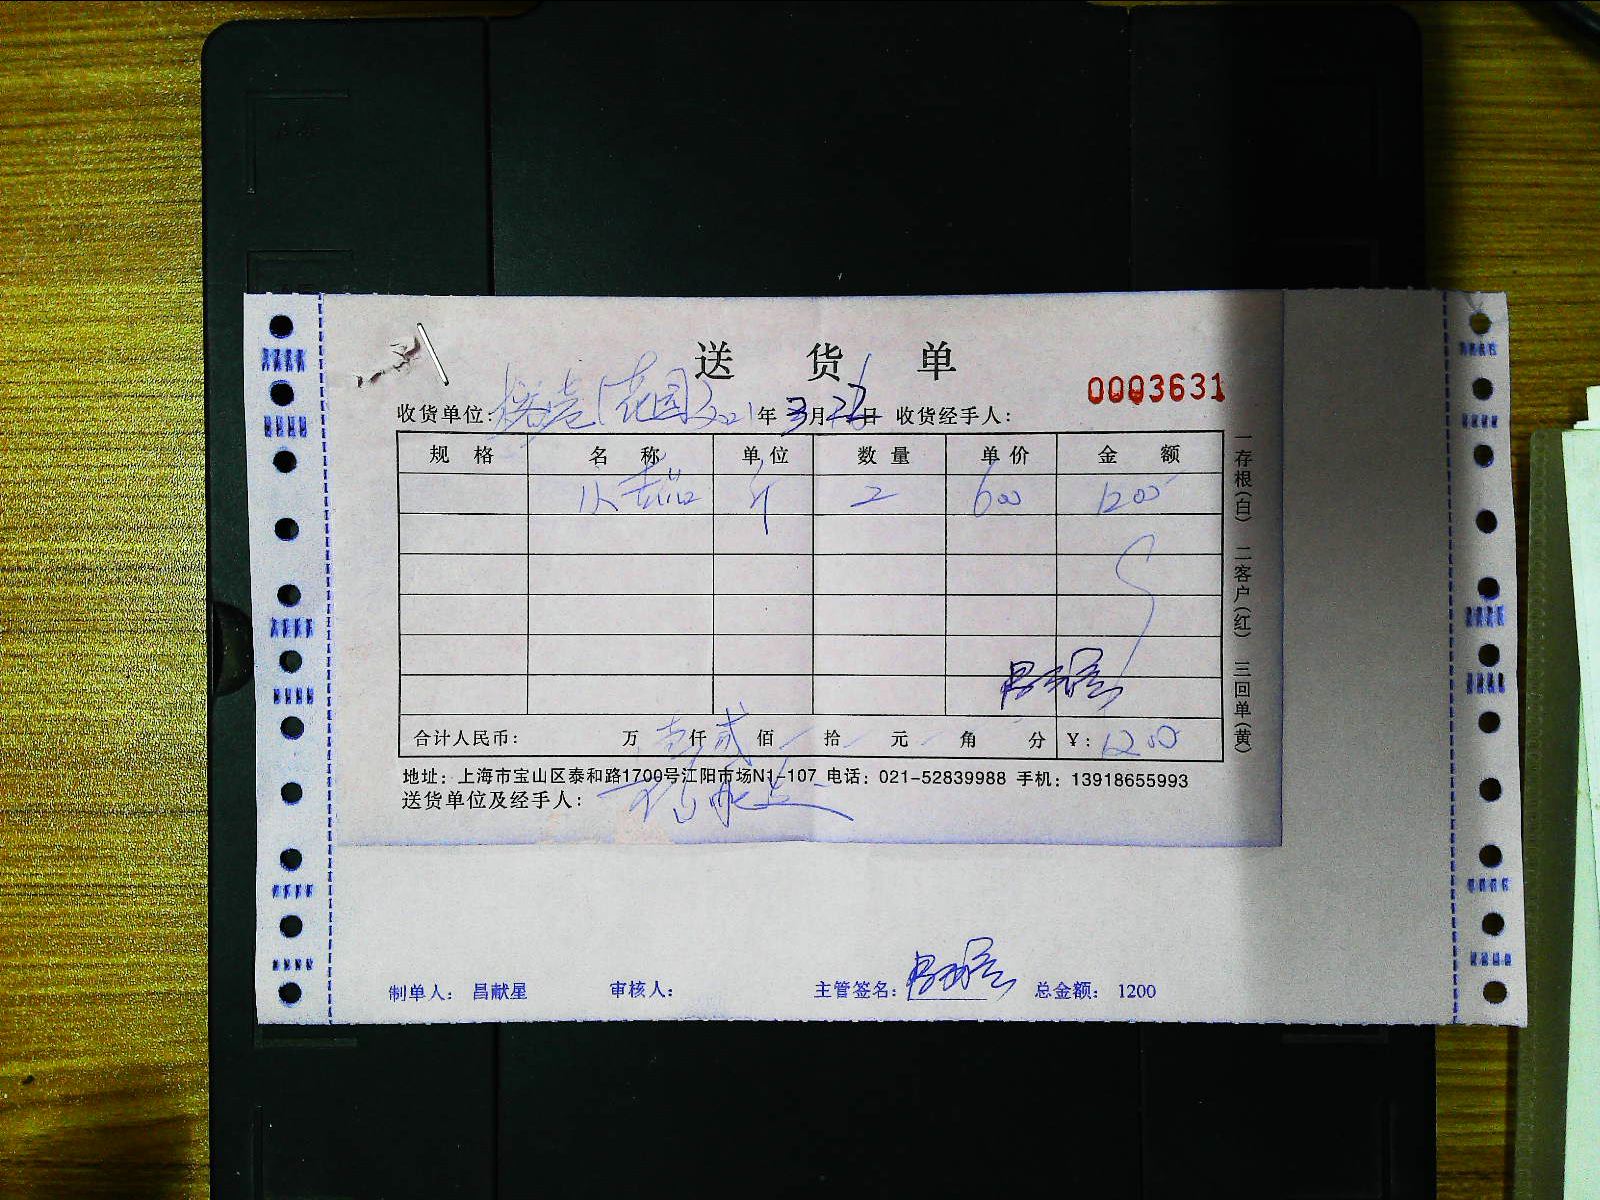 送 货 单
0003631
收货单位: (花园) 2021年3月 日 收货经手人:
规 格 名 称 单 位 数 量 单 价 金 额
斤 2 600 1200
合计人民币: 万壹仟贰佰 拾 元 角 分 ¥: 1200
地址: 上海市宝山区泰和路1700号江阳市场N1-107 电话: 021-52839988 手机: 13918655993
送货单位及经手人:
一存根(白) 二客户(红) 三回单(黄)
制单人: 昌献星 审核人: 主管签名: 总金额: 1200